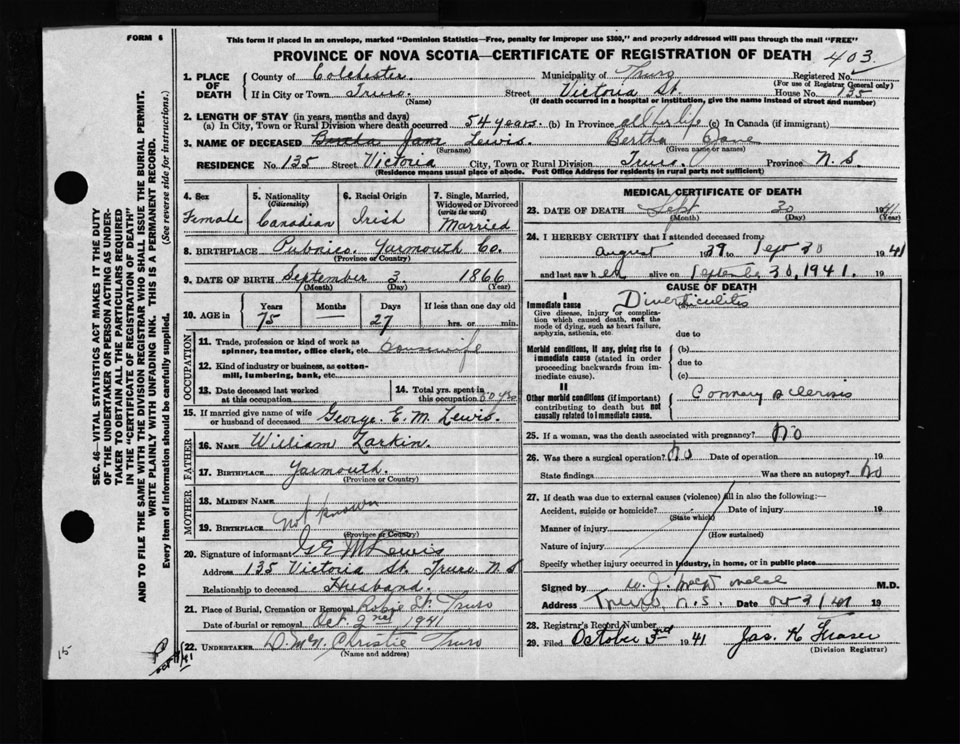 FORM 6
This form if placed in an envelope, marked "Dominion Statistics—Free, penalty for improper use $300," and properly addressed will pass through the mail "FREE"
PROVINCE OF NOVA SCOTIA—CERTIFICATE OF REGISTRATION OF DEATH 403
1. PLACE OF DEATH
County of Colchester Municipality of Truro Registered No.
(For use of Registrar General only)
If in City or Town Truro. Street Victoria St. House No. 135
(Name) (If death occurred in a hospital or institution, give the name instead of street and number)
2. LENGTH OF STAY (in years, months and days)
(a) In City, Town or Rural Division where death occurred 54 years. (b) In Province all her life (c) In Canada (if immigrant)
3. NAME OF DECEASED Jane Lewis. Bertha Jane
(Surname) (Given name or names)
RESIDENCE No. 135 Street Victoria City, Town or Rural Division Truro. Province N.S
(Residence means usual place of abode. Post Office Address for residents in rural parts not sufficient)
4. Sex Female
5. Nationality (Citizenship) Canadian
6. Racial Origin Irish
7. Single, Married, Widowed or Divorced (write the word) Married
8. BIRTHPLACE Pubnico. Yarmouth Co.
(Province or Country)
9. DATE OF BIRTH September 3 1866
(Month) (Day) (Year)
10. AGE in Years 75 Months — Days 27 If less than one day old
hrs. or min.
OCCUPATION
11. Trade, profession or kind of work as spinner, teamster, office clerk, etc. housewife
12. Kind of industry or business, as cotton-mill, lumbering, bank, etc.
13. Date deceased last worked at this occupation
14. Total yrs. spent in this occupation 50 yrs
15. If married give name of wife or husband of deceased George. E. M. Lewis.
FATHER
16. NAME William Larkin.
17. BIRTHPLACE Yarmouth.
(Province or Country)
MOTHER
18. MAIDEN NAME
19. BIRTHPLACE not known
(Province or Country)
20. Signature of informant G E M Lewis
Address 135 Victoria St. Truro N S
Relationship to deceased Husband.
21. Place of Burial, Cremation or Removal Robie St. Truro
Date of burial or removal Oct. 2nd 1941
22. UNDERTAKER Christie Truro
(Name and address)
MEDICAL CERTIFICATE OF DEATH
23. DATE OF DEATH Sept 30 1941
(Month) (Day) (Year)
24. I HEREBY CERTIFY that I attended deceased from
august 1939 to Sept 30 1941
and last saw h er alive on September 30, 1941. 19
CAUSE OF DEATH
I
Immediate cause Diverticulitis
Give disease, injury or complication which caused death, not the mode of dying, such as heart failure, asphyxia, asthenia, etc.
due to
Morbid conditions, if any, giving rise to immediate cause (stated in order proceeding backwards from immediate cause).
(b)
due to
(c)
II
Other morbid conditions (if important) contributing to death but not causally related to immediate cause. Coronary sclerosis
25. If a woman, was the death associated with pregnancy? No
26. Was there a surgical operation? No Date of operation 19
State findings Was there an autopsy? No
27. If death was due to external causes (violence) fill in also the following:—
Accident, suicide or homicide? Date of injury 19
(State which)
Manner of injury
(How sustained)
Nature of injury
Specify whether injury occurred in industry, in home, or in public place
Signed by M.D.
Address Truro, N.S. Date 19
28. Registrar's Record Number
29. Filed October 3rd 1941 Jas. K Fraser
(Division Registrar)
SEC. 46—VITAL STATISTICS ACT MAKES IT THE DUTY
OF THE UNDERTAKER OR PERSON ACTING AS UNDER-
TAKER TO OBTAIN ALL THE PARTICULARS REQUIRED
IN THE "CERTIFICATE OF REGISTRATION OF DEATH"
AND TO FILE THE SAME WITH THE DIVISION REGISTRAR WHO SHALL ISSUE THE BURIAL PERMIT.
WRITE PLAINLY WITH UNFADING INK. THIS IS A PERMANENT RECORD.
Every item of information should be carefully supplied. (See reverse side for instructions.)
15